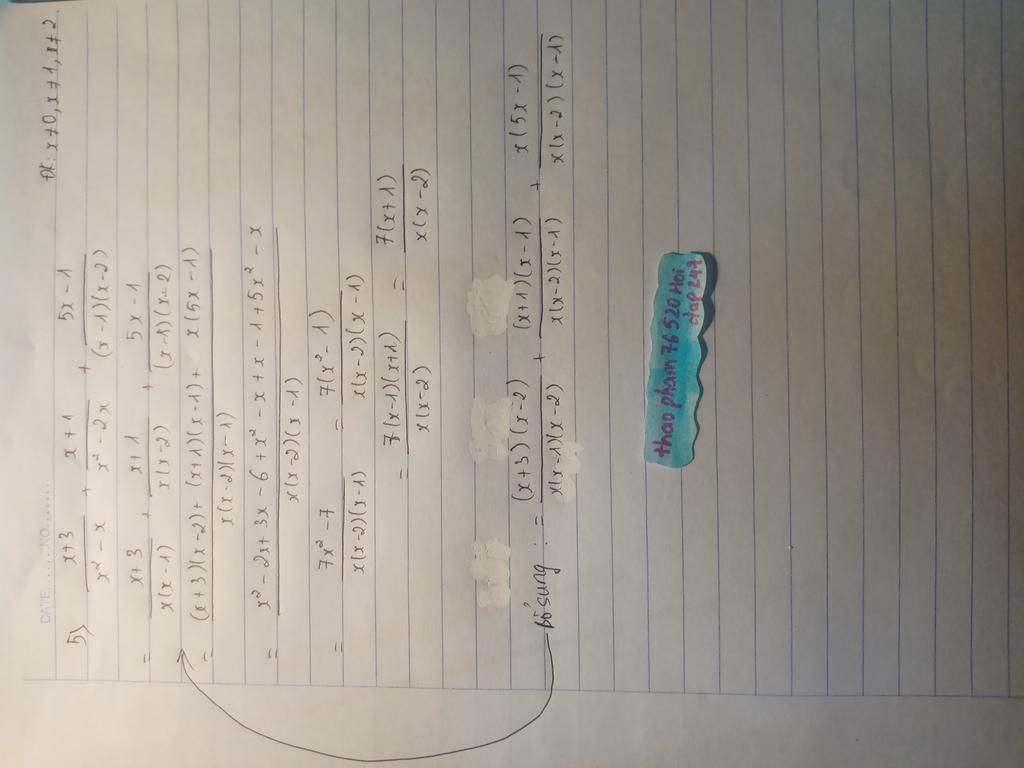 DATE.........NO.........
5) (x+3)/(x² - x) + (x+1)/(x² - 2x) + (5x - 1)/((x-1)(x-2)) ĐK: x≠0, x≠1, x≠2.
= (x+3)/(x(x-1)) + (x+1)/(x(x-2)) + (5x-1)/((x-1)(x-2))
= ((x+3)(x-2) + (x+1)(x-1) + x(5x-1))/(x(x-2)(x-1))
= (x² - 2x + 3x - 6 + x² - x + x - 1 + 5x² - x)/(x(x-2)(x-1))
= (7x² - 7)/(x(x-2)(x-1)) = 7(x² - 1)/(x(x-2)(x-1))
= 7(x-1)(x+1)/(x(x-2)) = 7(x+1)/(x(x-2))
bổ sung : = (x+3)(x-2)/(x(x-1)(x-2)) + (x+1)(x-1)/(x(x-2)(x-1)) + x(5x-1)/(x(x-2)(x-1))
thao pham 76520 Hoi
dap 247